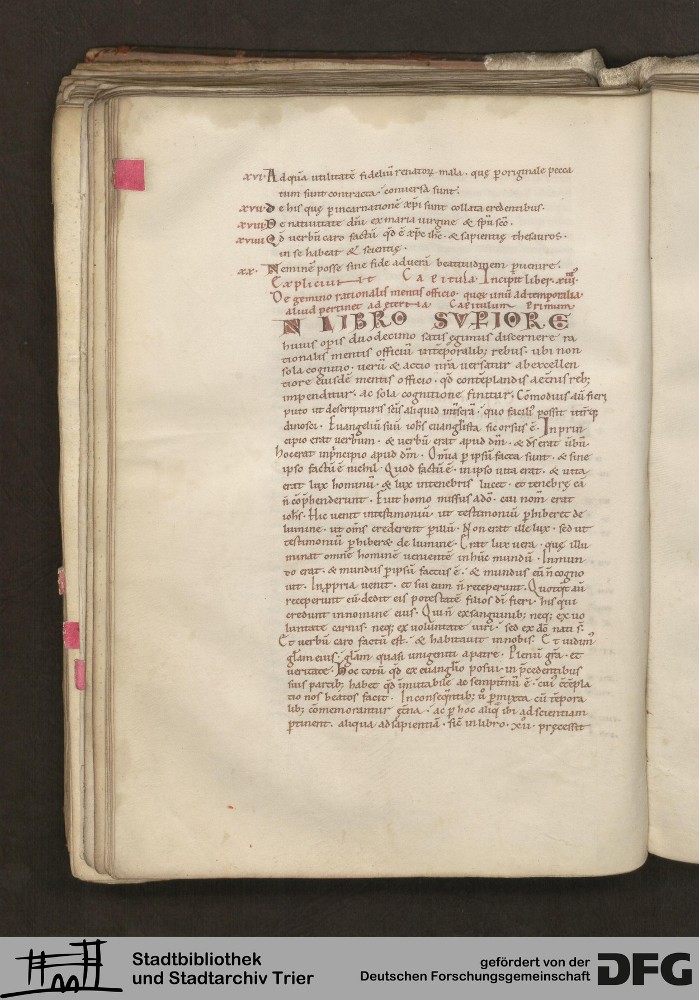 xvi· Ad quā utilitatē fideliū renatoꝝ mala · quę ꝑ originale pecca
tum sunt contracta · conversa sunt·
xvii· De his quę ꝑ incarnationē xp̄i sunt collata credentibus·
xviii· De nativitate dn̄i ex maria virgine & spū sc̄o·
xviiii· Qd̄ verbū caro factū qd̄ ē xp̄c ih̄c · & sapientię thesauros·
in se habeat & scientię·
xx· Neminē posse sine fide ad verā beatitudinem pvenire·
Expliciunt Capitula Incipit liber xiii·
De gemino rationalis mentis officio · quoꝝ unū ad temporalia
aliud pertinet ad eterna Capitulum Primum
IN LIBRO SVPIORE
huius opis duodecimo satis egimus discernere ra
tionalis mentis officiū in tēporalib; rebus · ubi non
sola cognitio · verū & actio nr̄a versatur ab excellen
tiore eiusdē mentis officio · qd̄ contēplandis aet̄nis reb;
impenditur · ac sola cognitione finitur· Cōmodius aū fieri
puto ut de scripturis sc̄is aliquid inserā · quo facili possit
dinosci· Evangeliū suū ioh̄s euanglīsta sic orsus ē· In prin
cipio erat verbum · & verbū erat apud dm̄ · & ds̄ erat ūbū·
hoc erat inp̄ncipio apud dm̄· Omīa ꝑ ipsū facta sunt · & sine
ipso factū ē nichil· Quod factū ē · in ipso vita erat · & vita
erat lux hominū · & lux in tenebris lucet · et tenebrę eā
n̄ cōp̄henderunt· Fuit homo missus a dō · cui nom̄ erat
ioh̄s· Hic venit in testimoniū · ut testimoniū ꝑhiberet de
lumine · ut om̄s crederent ꝑ illū · Non erat ille lux · sed ut
testimoniū ꝑhiberet de lumine· Erat lux vera · quę illu
minat omnē hominē venientē in hūc mundū· In mun
do erat · & mundus ꝑ ipsū factus ē · & mundus eū n̄ cogno
vit· In ꝓpria venit · et sui eum n̄ receperunt· Quotqt̄ aū
receperunt eū · dedit eis potestatē filios dī fieri · his qui
credunt in nomine eius· Qui n̄ ex sanguinib; neq; ex vo
luntate carnis · neq; ex voluntate viri · sed ex dō nati s̄·
Et verbū caro factū est · & habitavit in nobis· Et vidim̄
glām eius · glām quasi unigeniti a patre· Plenū grā · et
veritate· Hoc totū qd̄ ex euanglīo posui in p̄cedentibus
suis partib; habet qd̄ īmutabile ac sempit̄nū ē · cui cōtēpla
tio nos beatos facit· In conseqn̄tib; ū ꝑmixta cū tēpora
lib; cōmemorantur ęt̄na · ac ꝑ hoc aliq̄ ibi ad scientiam
ꝑtinent · aliqua ad sapientiā · sic̄ in libro · xii · pręcessit
Stadtbibliothek
und Stadtarchiv Trier
gefördert von der
Deutschen Forschungsgemeinschaft
DFG